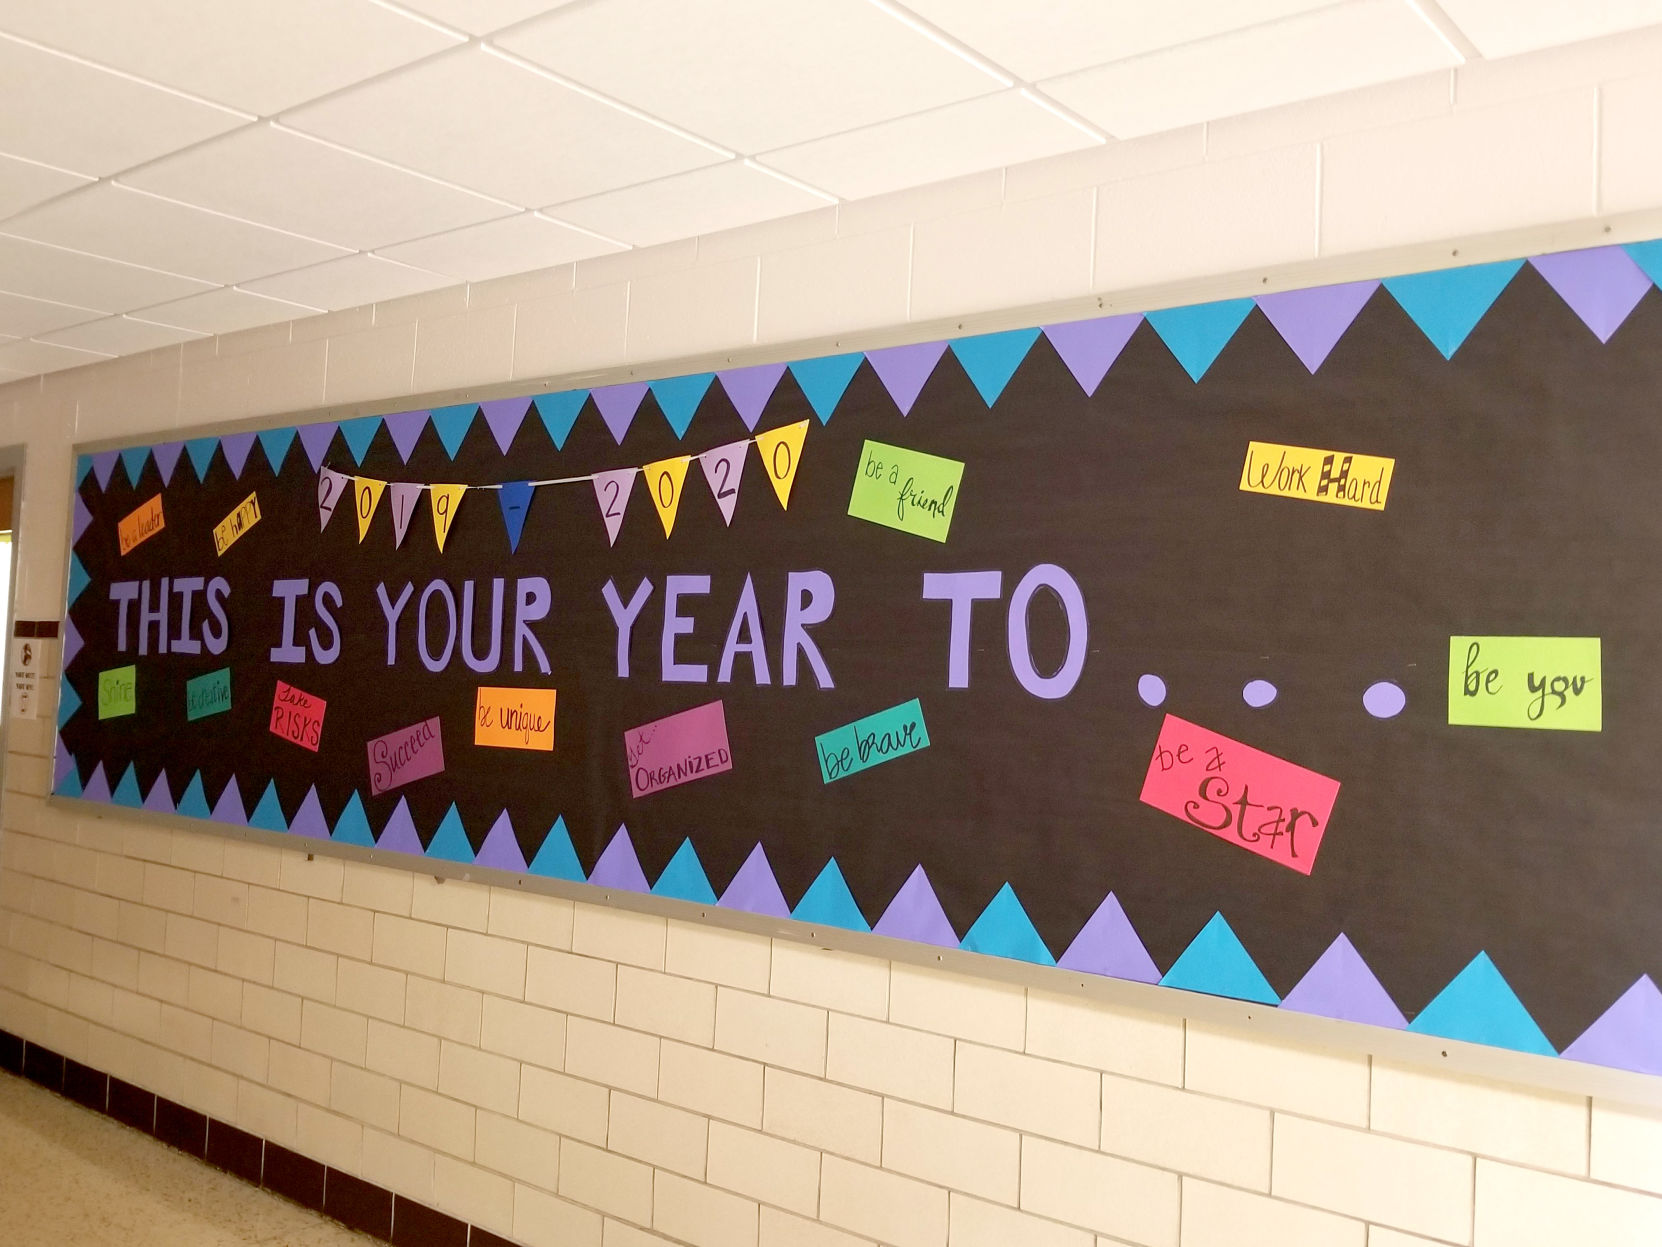 2019-2020
be a leader
be happy
be a
friend
Work Hard
THIS IS YOUR YEAR TO...
be you
Shine
be creative
take
RISKS
Succeed
be unique
get...
ORGANIZED
be brave
be a
Star